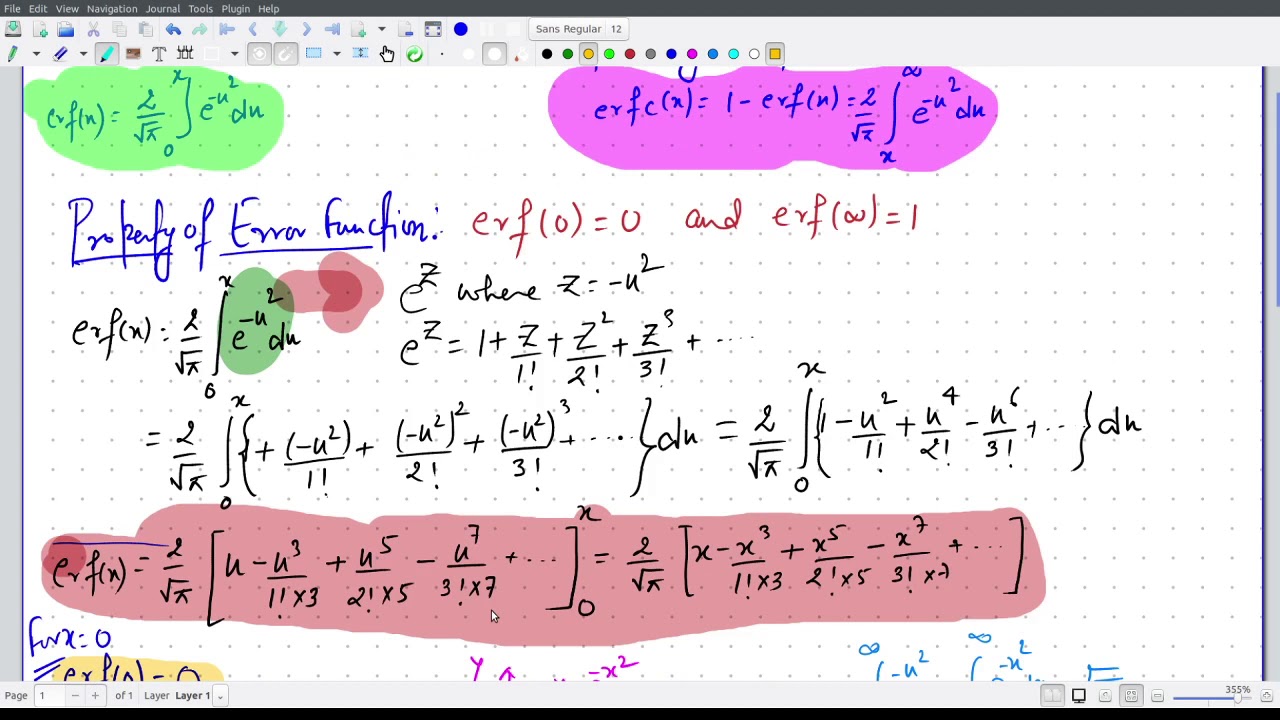 File Edit View Navigation Journal Tools Plugin Help
Sans Regular 12
erf(x) = 2/√π ∫₀ˣ e^{-u²} du
erfc(x) = 1 - erf(x) = 2/√π ∫ₓ^∞ e^{-u²} du
Property of Error function: erf(0) = 0 and erf(∞) = 1
erf(x) = 2/√π ∫₀ˣ e^{-u²} du
e^z where z = -u²
e^z = 1 + z/1! + z²/2! + z³/3! + ....
= 2/√π ∫₀ˣ { + (-u²)/1! + (-u²)²/2! + (-u²)³/3! + .... } du = 2/√π ∫₀ˣ {1 - u²/1! + u⁴/2! - u⁶/3! + ... } du
erf(x) = 2/√π [u - u³/1!×3 + u⁵/2!×5 - u⁷/3!×7 + ....]₀ˣ = 2/√π [x - x³/1!×3 + x⁵/2!×5 - x⁷/3!×7 + ....]
For x = 0
Page 1 of 1 Layer Layer 1 355%